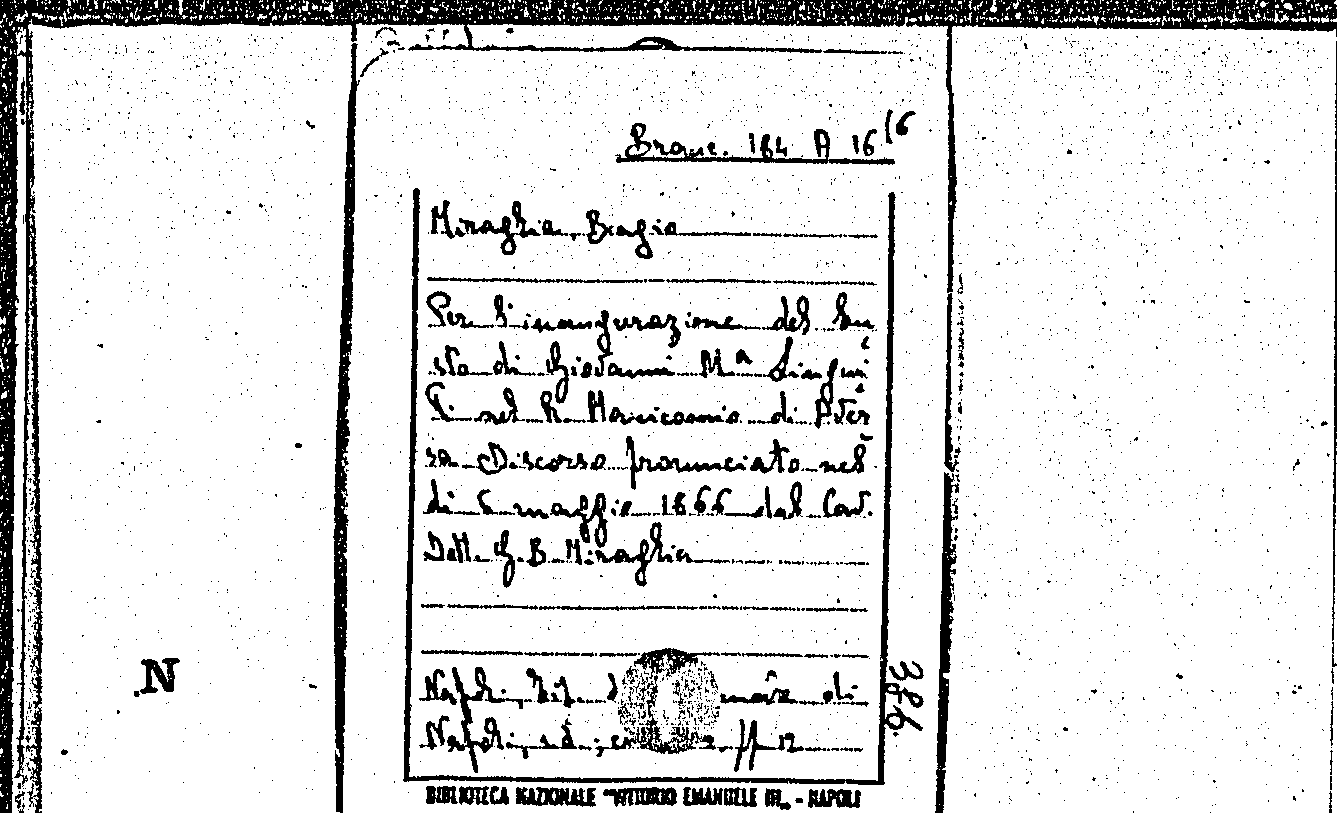 Brouc. 184 A 16 (6
Miraglia, Biagio
Per l'inaugurazione del bu
sto di Giovanni Mª Lingui
ti nel R. Manicomio di Aver
sa Discorso pronunciato nel
di 6 maggio 1866 dal Cav.
Dott. G. B. Miraglia
Napoli, Tip. di
Napoli, pp 12
386
N
BIBLIOTECA NAZIONALE "VITTORIO EMANUELE III„ - NAPOLI